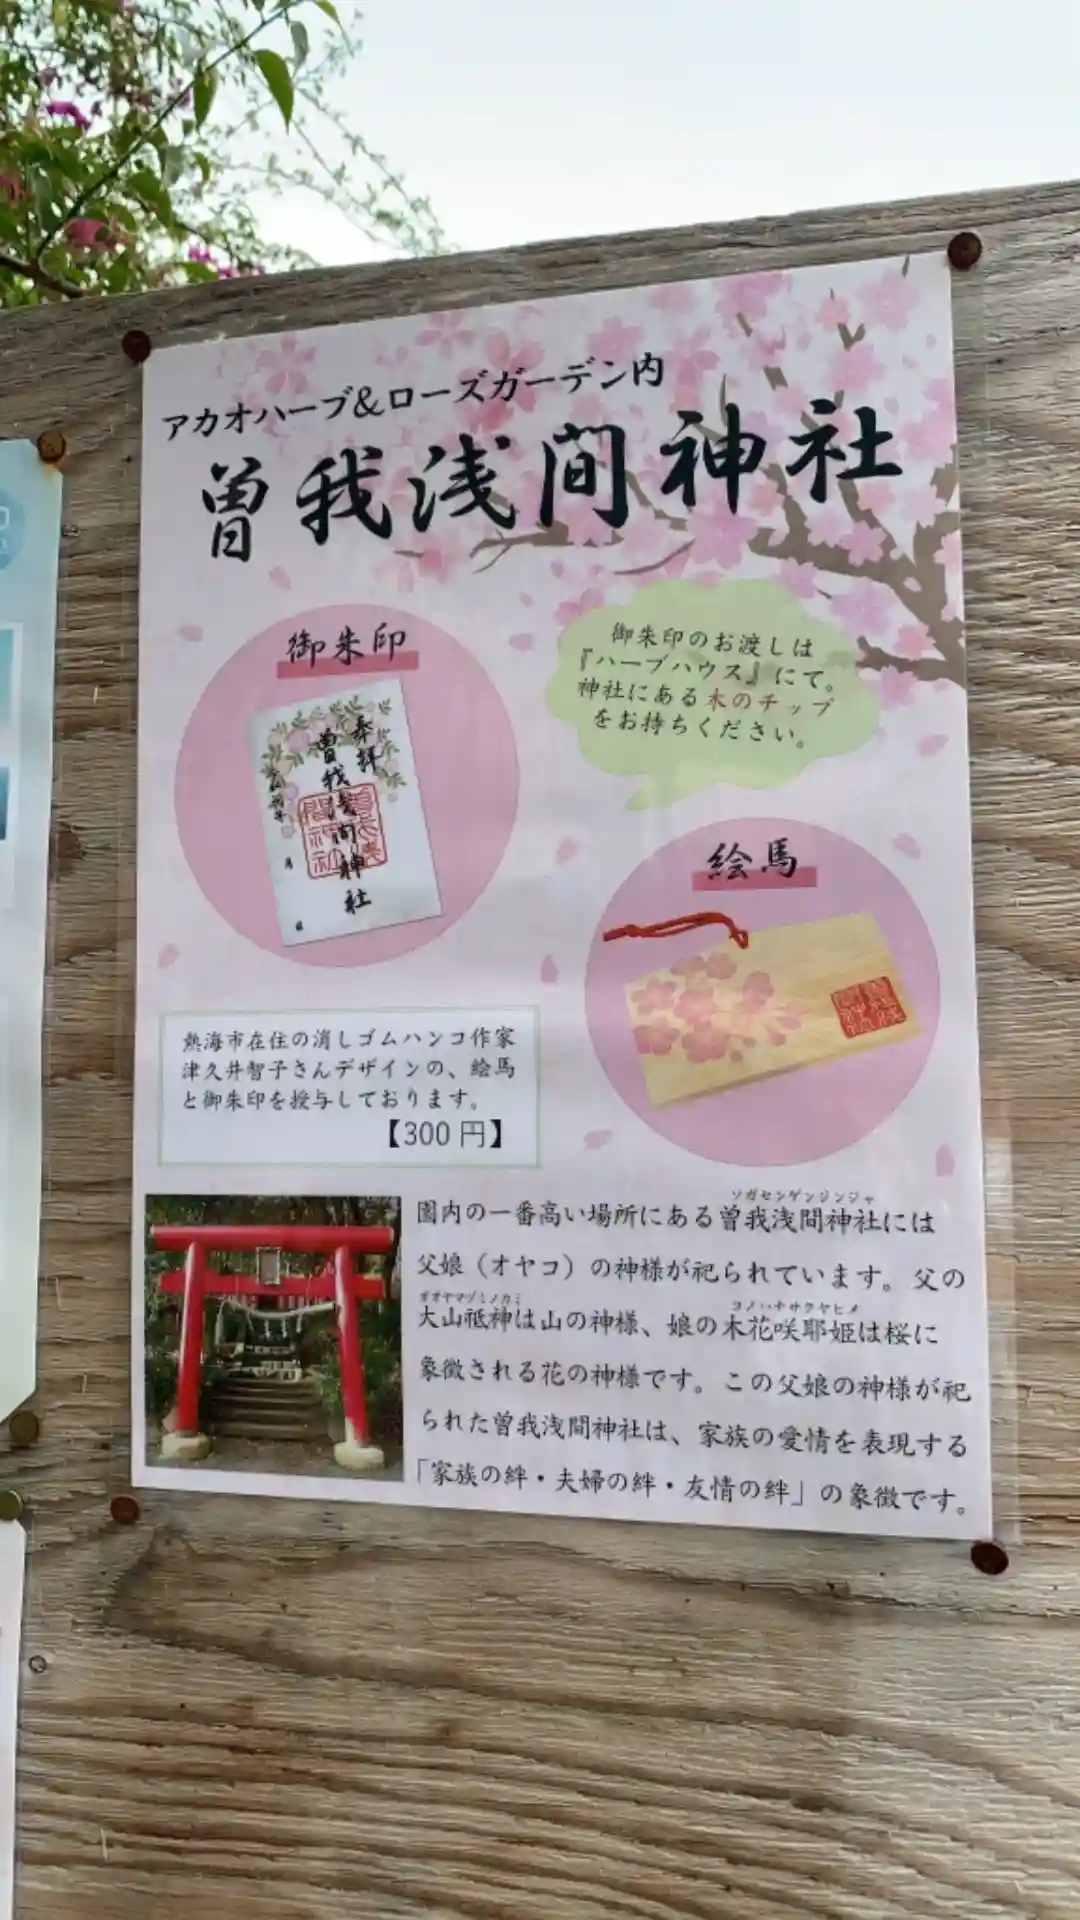 アカオハーブ&ローズガーデン内
曽我浅間神社
御朱印
御朱印のお渡しは
『ハーブハウス』にて。
神社にある木のチップ
をお持ちください。
奉拝
曽我浅間神社
月
日
絵馬
熱海市在住の消しゴムハンコ作家
津久井智子さんデザインの、絵馬
と御朱印を授与しております。
【300円】
ソガセンゲンジンジャ
園内の一番高い場所にある曽我浅間神社には
父娘（オヤコ）の神様が祀られています。父の
オオヤマヅミノカミ コノハナサクヤヒメ
大山祗神は山の神様、娘の木花咲耶姫は桜に
象徴される花の神様です。この父娘の神様が祀
られた曽我浅間神社は、家族の愛情を表現する
「家族の絆・夫婦の絆・友情の絆」の象徴です。